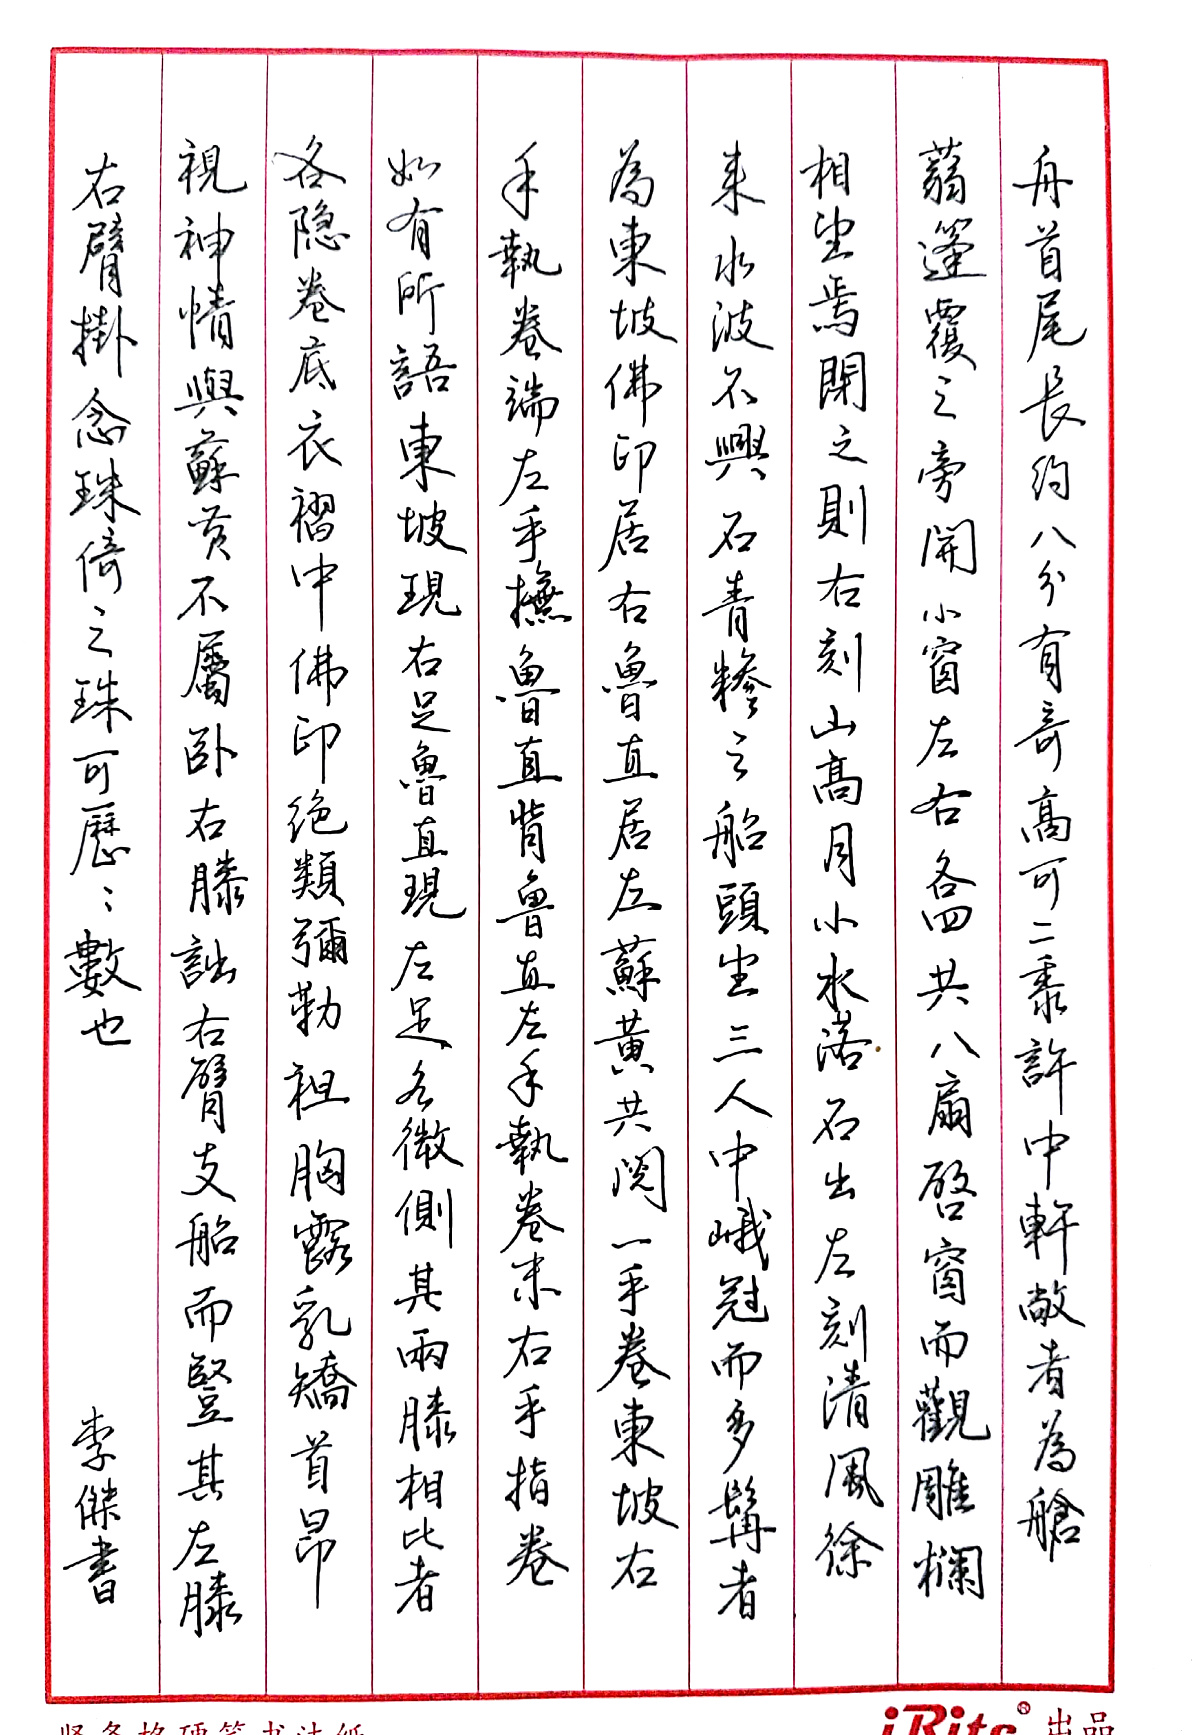 舟首尾長約八分有奇高可二黍許中軒敞者為艙
蒻篷覆之旁開小窗左右各四共八扇啓窗而觀雕欄
相望焉閉之則右刻山高月小水落石出左刻清風徐
来水波不興石青糝之船頭坐三人中峨冠而多髯者
為東坡佛印居右魯直居左蘇黃共閱一手卷東坡右
手執卷端左手撫魯直背魯直左手執卷末右手指卷
如有所語東坡現右足魯直現左足各微側其兩膝相比者
各隐卷底衣褶中佛印绝類彌勒袒胸露乳矯首昂
視神情與蘇黄不屬卧右膝詘右臂支船而豎其左膝
左臂掛念珠倚之珠可歷〻數也
李傑書
竖条格硬笔书法纸
iRits® 出品